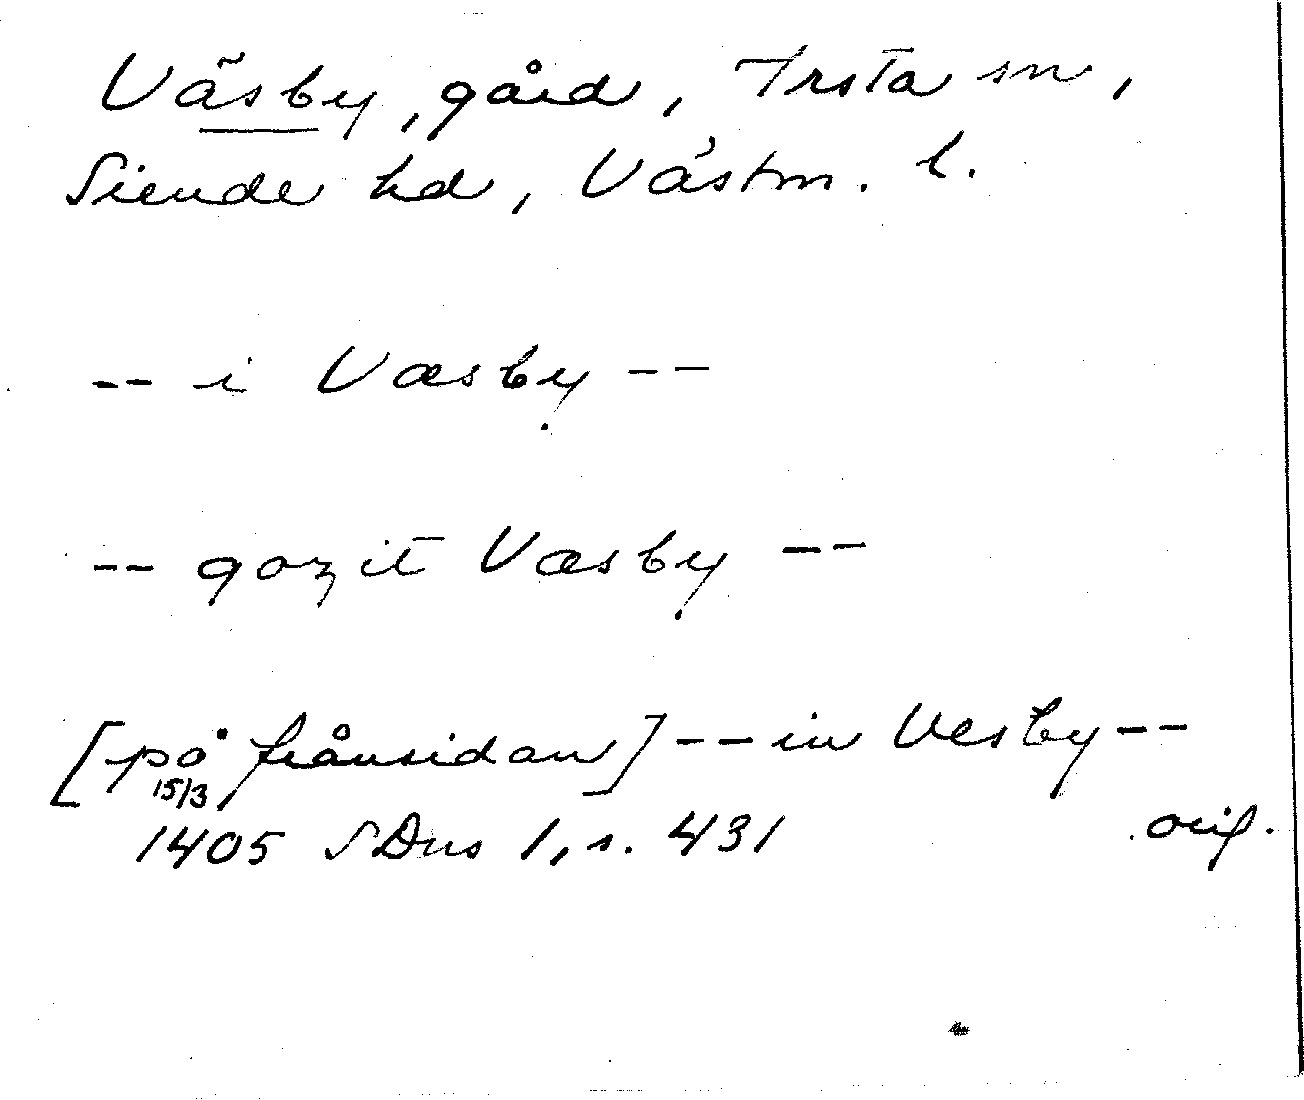 Väsby, gård, Irsta sn,
Siende hd, Västm. l.
-- i Væsby --
-- gozit Væsby --
[på frånsidan] -- in Vesby --
15/3
1405 SDns 1, s. 431 orig.